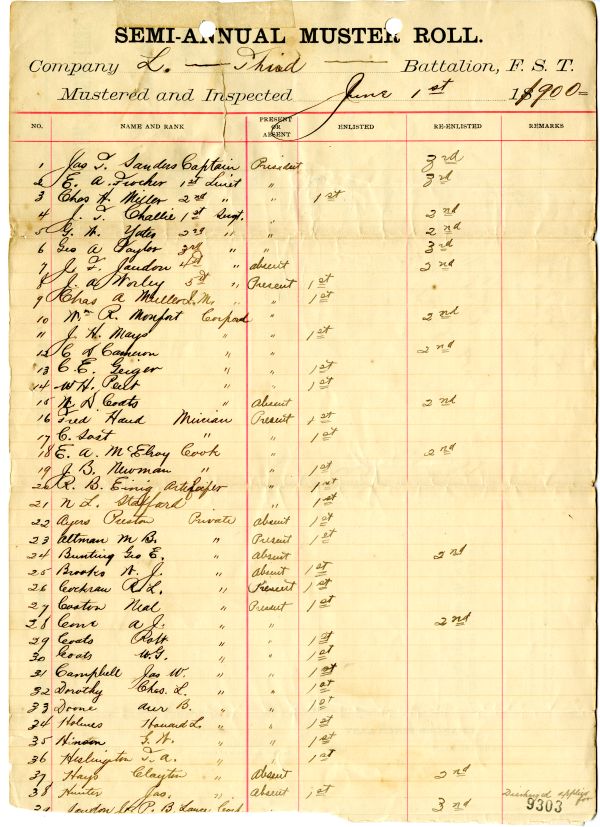 SEMI-ANNUAL MUSTER ROLL.
Company L. — Third — Battalion, F. S. T.
Mustered and Inspected June 1st 1900
NO. NAME AND RANK PRESENT OR ABSENT ENLISTED RE-ENLISTED REMARKS
1 Jas T. Sanders Captain Present 3rd
2 E. A. 1st Lieut " 3rd
3 Chas H. Miller 2nd " " 1st
4 J. T. Challie 1st Sergt. " 2nd
5 G. W. Yates 2nd " " 2nd
6 Geo A Taylor 3rd " " 3rd
7 J. F. Jaudon 4th " absent 2nd
8 J. A. Worley 5th " Present 1st
9 Chas A Muller " " 1st
10 Wm R. Monfort Corporal " 2nd
11 J. H. Mays " " 1st
12 C D Cameron " " 2nd
13 C. E. Geiger " " 1st
14 W. H. Pelt " " 1st
15 Coats " Absent 2nd
16 Fred Hand Present 1st
17 C. Sost " " 1st
18 E. A. McElroy Cook " 2nd
19 J. B. Newman " " 1st
20 R. B. Einig " 1st
21 N L. Stafford " 1st
22 Ayers Preston Private Absent 1st
23 Altman M B. " Present 1st
24 Bunting Geo E. " Absent 2nd
25 Brooks J. " Absent 1st
26 Cochran R. L. " Present 1st
27 Coston Neal " Present 1st
28 Cone A J. " " 2nd
29 Coats Robt " " 1st
30 Coats W. G. " " 1st
31 Campbell Jas W. " " 1st
32 Dorothy Chas. L. " " 1st
33 Doone B. " " 1st
34 Holmes Howard L. " " 1st
35 Hinson G. W. " " 1st
36 T. A. " " 1st
37 Hays Clayton " Absent 2nd
38 Hunter Jas. " Absent 1st Discharge applied for
39 Jaudon P. B. Lance Corp 3rd
9303